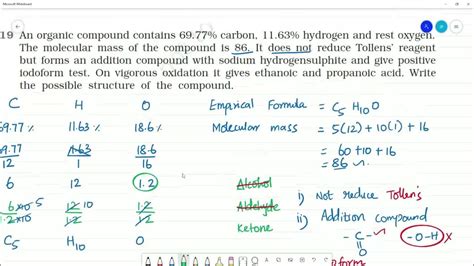 Microsoft Whiteboard
19 An organic compound contains 69.77% carbon, 11.63% hydrogen and rest oxygen.
The molecular mass of the compound is 86. It does not reduce Tollens' reagent
but forms an addition compound with sodium hydrogensulphite and give positive
iodoform test. On vigorous oxidation it gives ethanoic and propanoic acid. Write
the possible structure of the compound.
C H O Emparical Formula = C5 H10 O
69.77 % 11.63 % 18.6 % Molecular mass = 5(12) + 10(1) + 16
69.77 11.63 18.6 = 60 + 10 + 16
12 1 16 = 86
6 12 1.2 Alcohol i) Not reduce Tollen's
6×10 5 12 10 1.2 Aldehyde ii) Addition compound
1.2×10 1.2 1.2 Ketone - C - - O - H X
C5 H10 O O